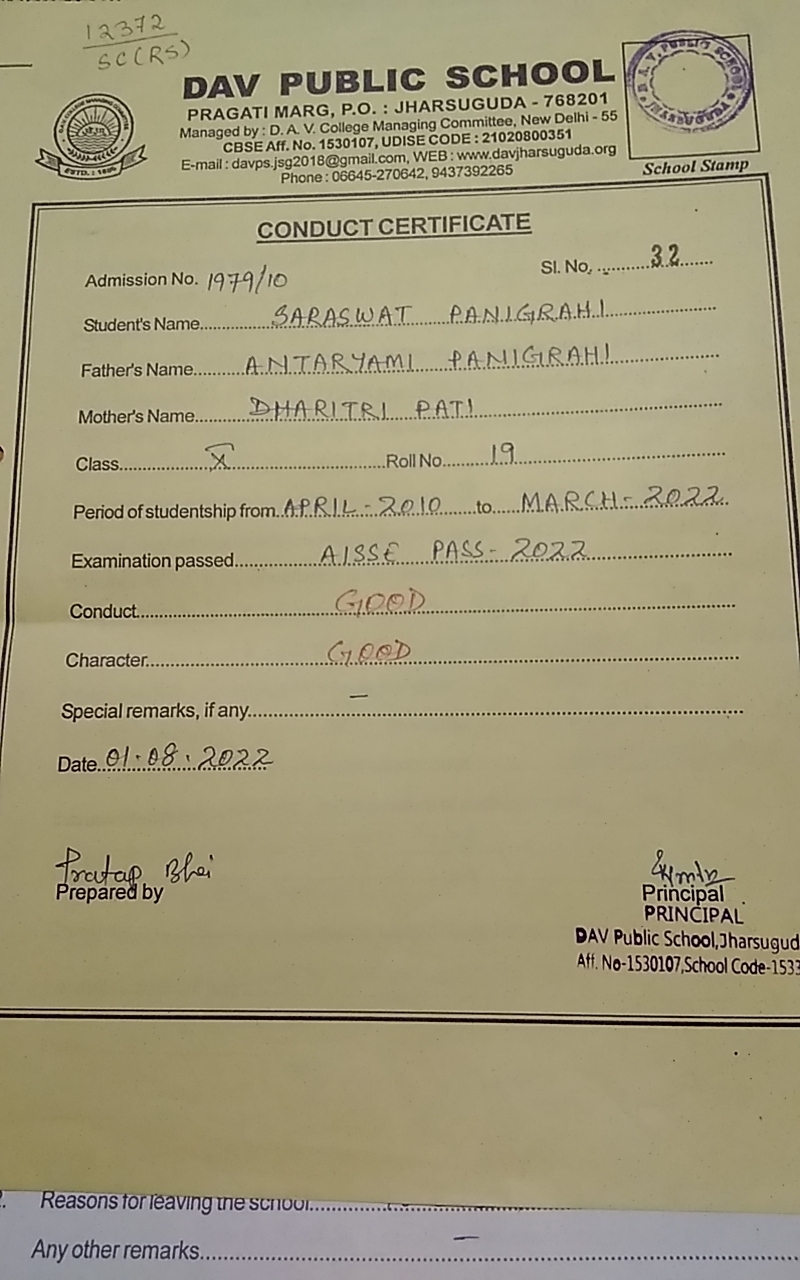 12372
SC(RS)
DAV PUBLIC SCHOOL
PRAGATI MARG, P.O. : JHARSUGUDA - 768201
Managed by : D. A. V. College Managing Committee, New Delhi - 55
CBSE Aff. No. 1530107, UDISE CODE : 21020800351
E-mail : davps.jsg2018@gmail.com, WEB : www.davjharsuguda.org
Phone : 06645-270642, 9437392265
D.A.V. PUBLIC SCHOOL JHARSUGUDA
School Stamp
ESTD. : 1886
CONDUCT CERTIFICATE
Admission No. 1979/10
Sl. No. 32
Student's Name SARASWAT PANIGRAHI
Father's Name ANTARYAMI PANIGRAHI
Mother's Name DHARITRI PATI
Class X Roll No. 19
Period of studentship from APRIL-2010 to MARCH-2022
Examination passed AISSE PASS-2022
Conduct GOOD
Character GOOD
Special remarks, if any —
Date 01.08.2022
Pratap Bhai
Prepared by
Principal
PRINCIPAL
DAV Public School,Jharsugud
Aff. No-1530107,School Code-1533
Reasons for leaving the school
Any other remarks —